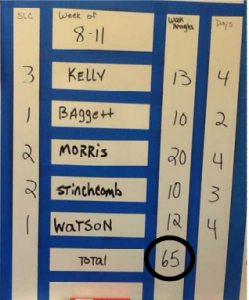 SLC Week of 8-11 Walk Aroughts Days
3 KELLY 13 4
1 BAggett 10 2
2 MORRIS 20 4
2 Stinchcomb 10 3
1 WATSON 12 4
TOTAl 65